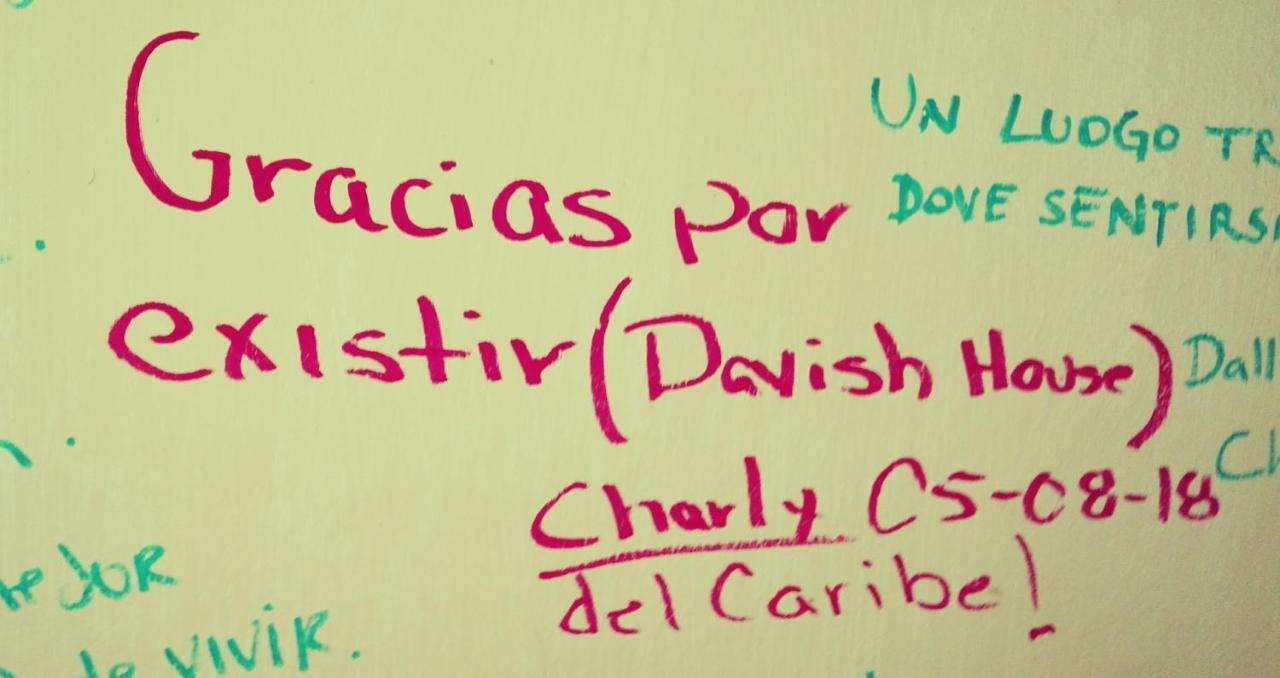 Gracias por
existir (Davish House)
Charly C5-08-18
del Caribe!
UN LUOGO TR
DOVE SENTIRSI
Dall
Ch
te JOR
de VIVIR.